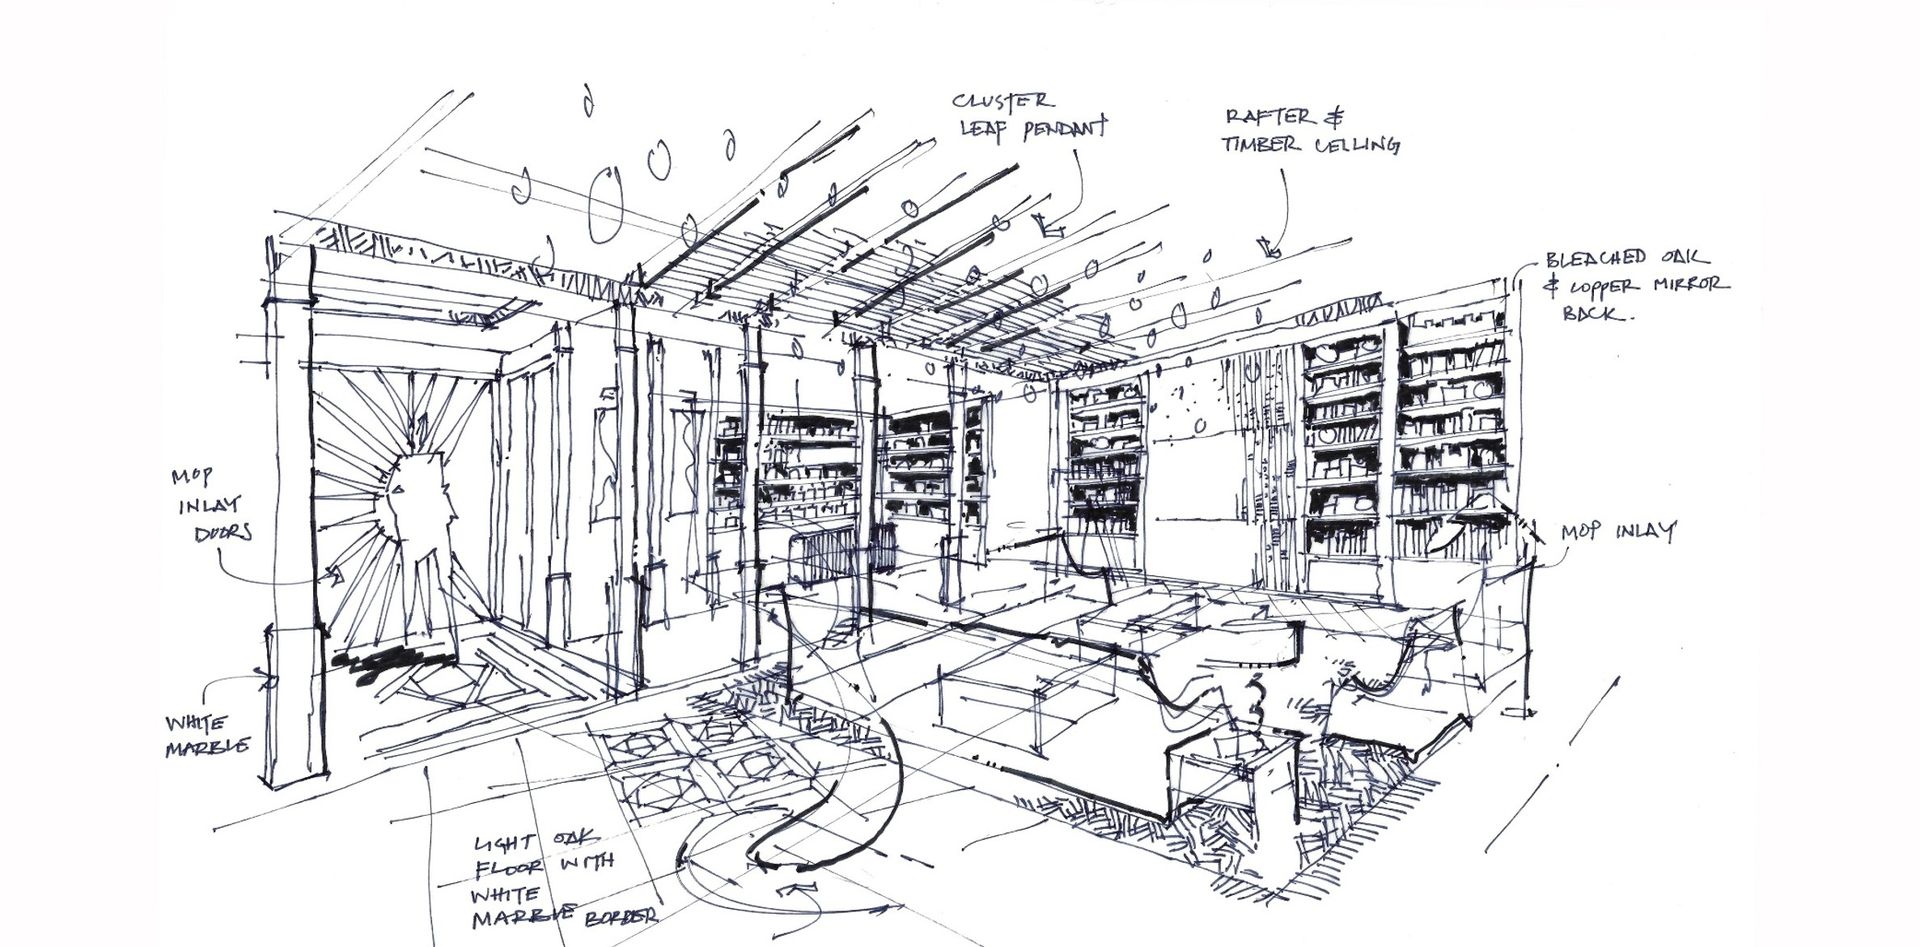 CLUSTER
LEAF PENDANT
RAFTER &
TIMBER CEILING
BLEACHED OAK
& COPPER MIRROR
BACK.
MOP
INLAY
DOORS
MOP INLAY
WHITE
MARBLE
LIGHT OAK
FLOOR WITH
WHITE
MARBLE BORDER